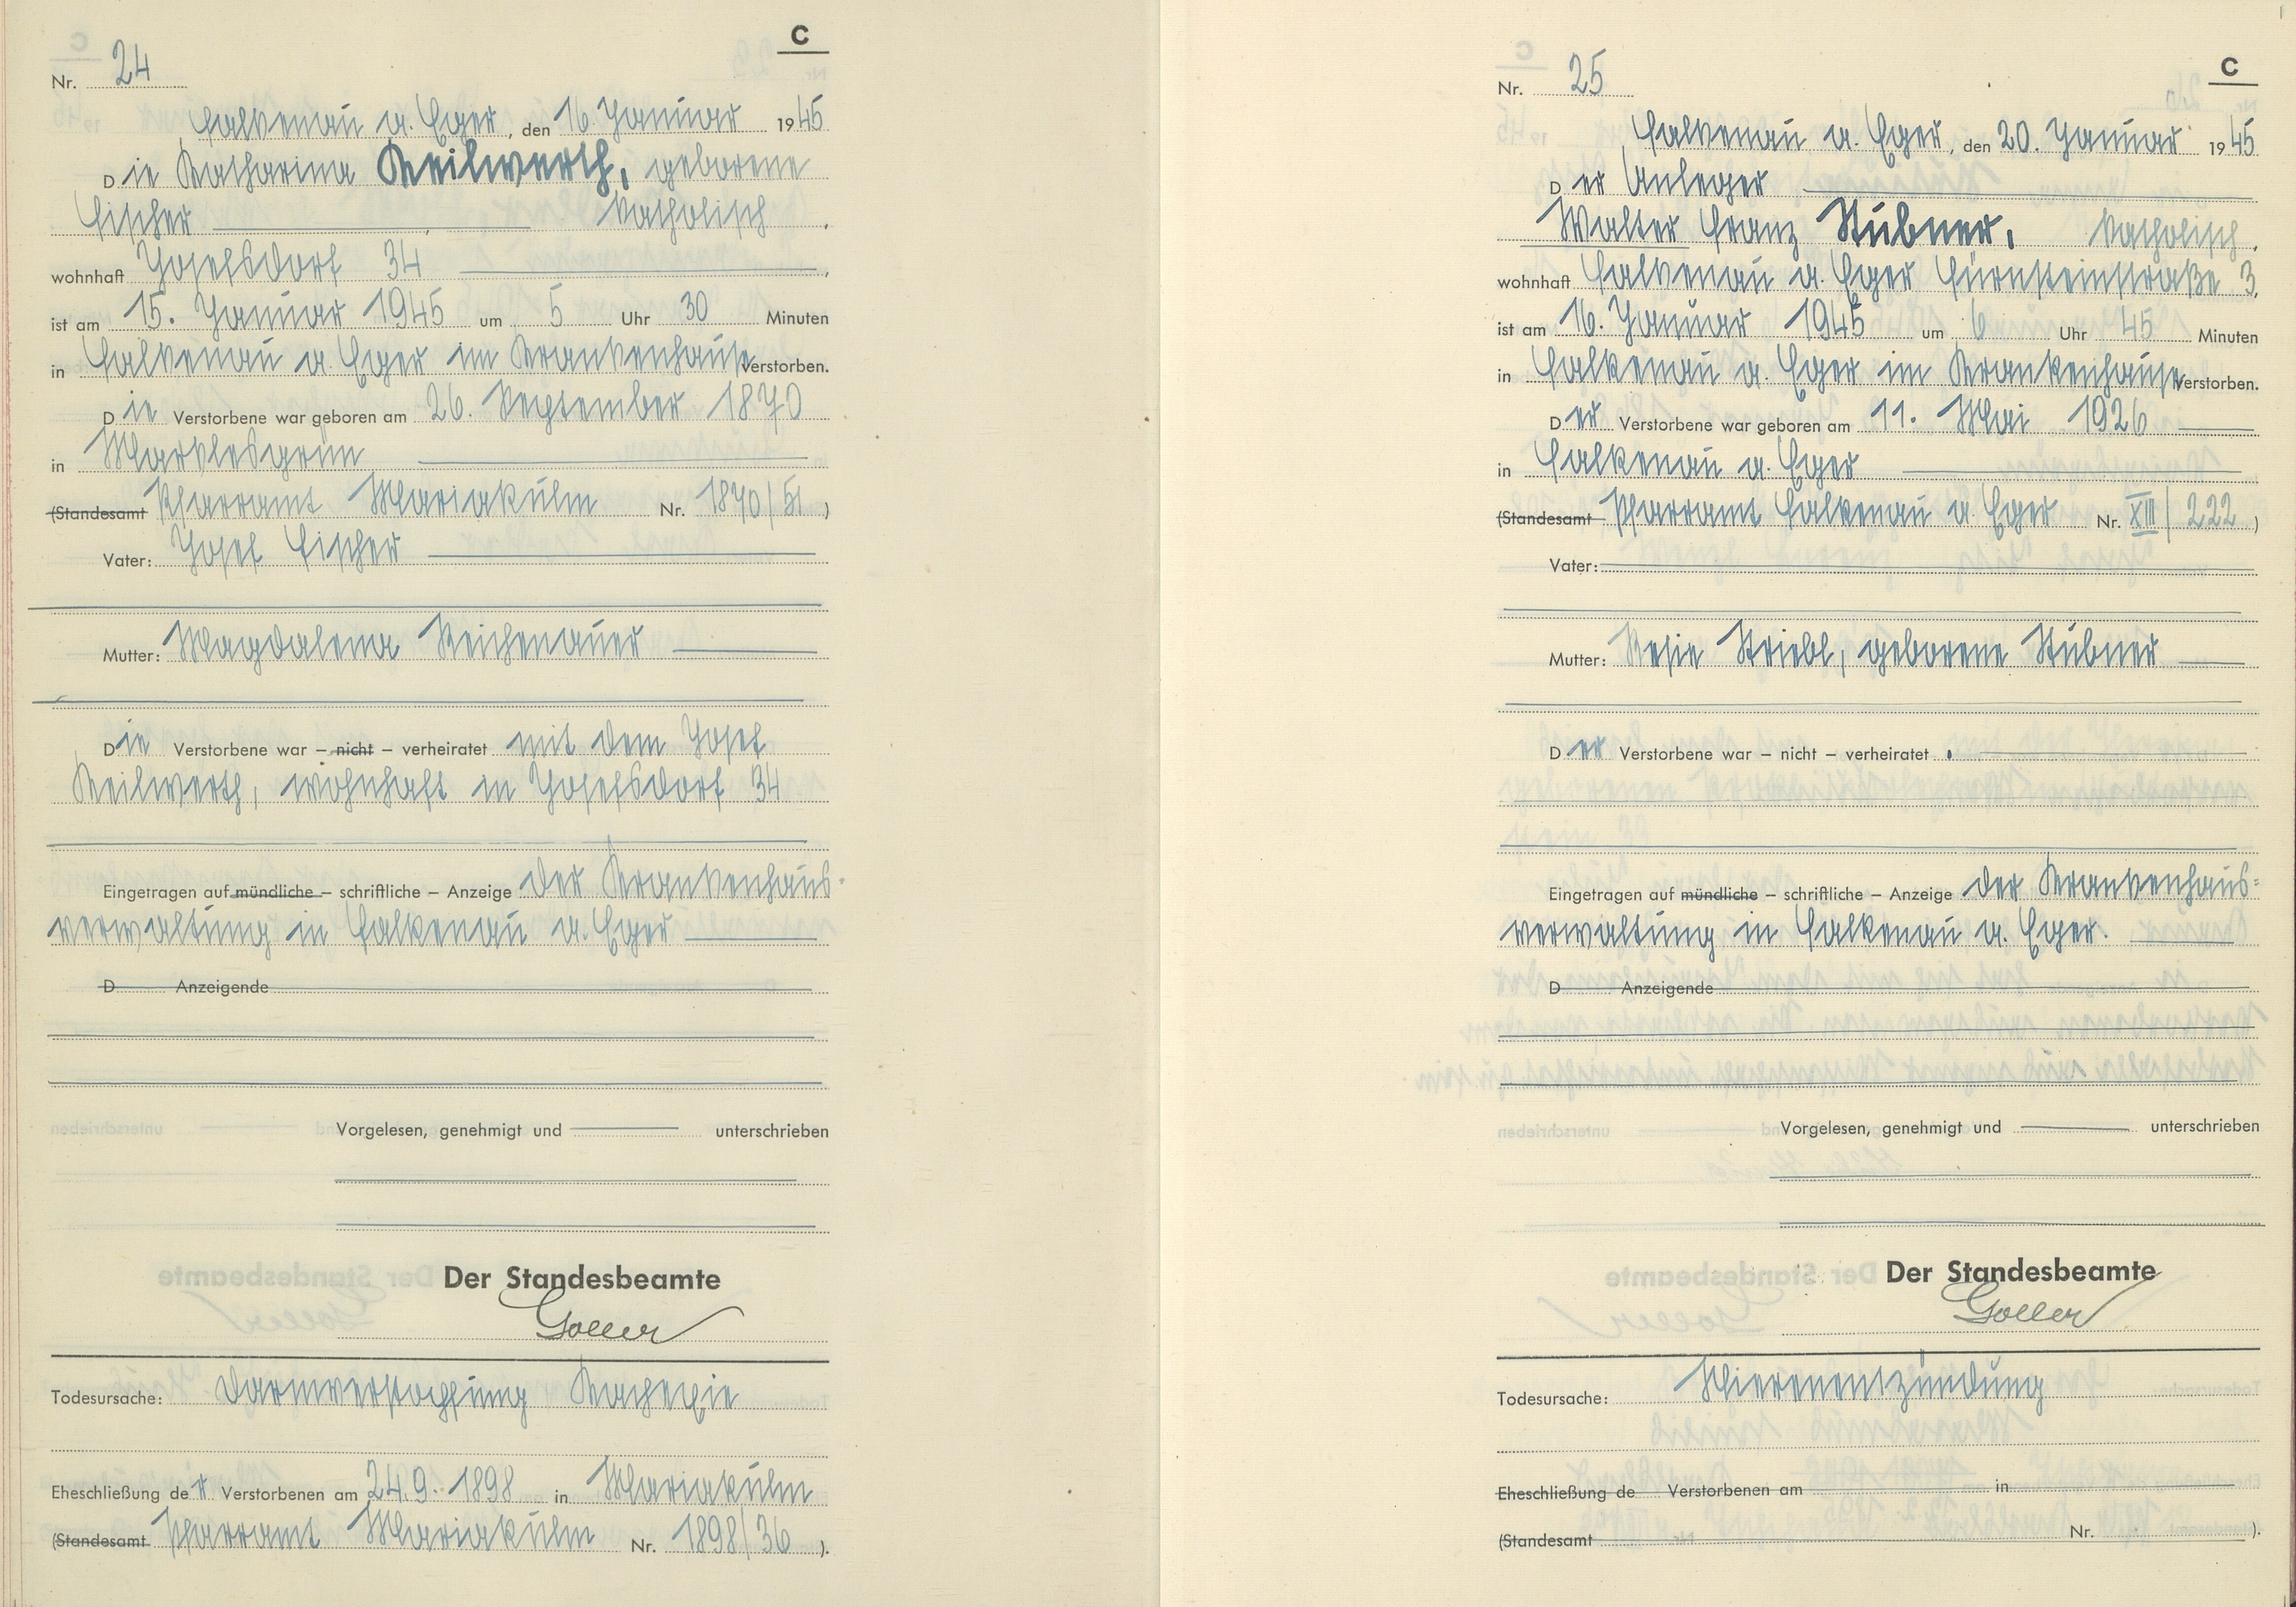 C
Nr. 24
Falkenau a. Eger, den 16. Januar 1945
Die Katharina Keilwerth, geborene
Fischer katholisch.
wohnhaft Josefsdorf 34,
ist am 15. Januar 1945 um 5 Uhr 30 Minuten
in Falkenau a. Eger im Krankenhause verstorben.
Die Verstorbene war geboren am 26. September 1870
in Marklesgrün
(Standesamt Pfarramt Mariakulm Nr. 1870/51)
Vater: Josef Fischer
Mutter: Magdalena Reichenauer
Die Verstorbene war – nicht – verheiratet mit dem Josef
Keilwerth, wohnhaft in Josefsdorf 34
Eingetragen auf mündliche – schriftliche – Anzeige der Krankenhaus-
verwaltung in Falkenau a. Eger
D Anzeigende
Vorgelesen, genehmigt und unterschrieben
Der Standesbeamte
Goller
Todesursache: Darmverstopfung Kachexie
Eheschließung der Verstorbenen am 24.9. 1898 in Mariakulm
(Standesamt Pfarramt Mariakulm Nr. 1898/36).
C
Nr. 25
Falkenau a. Eger, den 20. Januar 1945
Der Anleger
Walter Franz Stübner, katholisch.
wohnhaft Falkenau a. Eger Fürnsteinstraße 3,
ist am 16. Januar 1945 um 6 Uhr 45 Minuten
in Falkenau a. Eger im Krankenhause verstorben.
Der Verstorbene war geboren am 11. Mai 1926
in Falkenau a. Eger
(Standesamt Pfarramt Falkenau a. Eger Nr. XIII/222)
Vater:
Mutter: Resie Striebl, geborene Stübner
Der Verstorbene war – nicht – verheiratet.
Eingetragen auf mündliche – schriftliche – Anzeige der Krankenhaus-
verwaltung in Falkenau a. Eger.
D Anzeigende
Vorgelesen, genehmigt und unterschrieben
Der Standesbeamte
Goller
Todesursache: Nierenentzündung
Eheschließung de Verstorbenen am in
(Standesamt Nr. ).